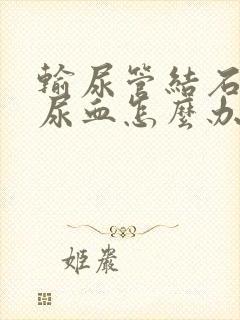 輸尿管結石
尿血怎麼办
姬嚴